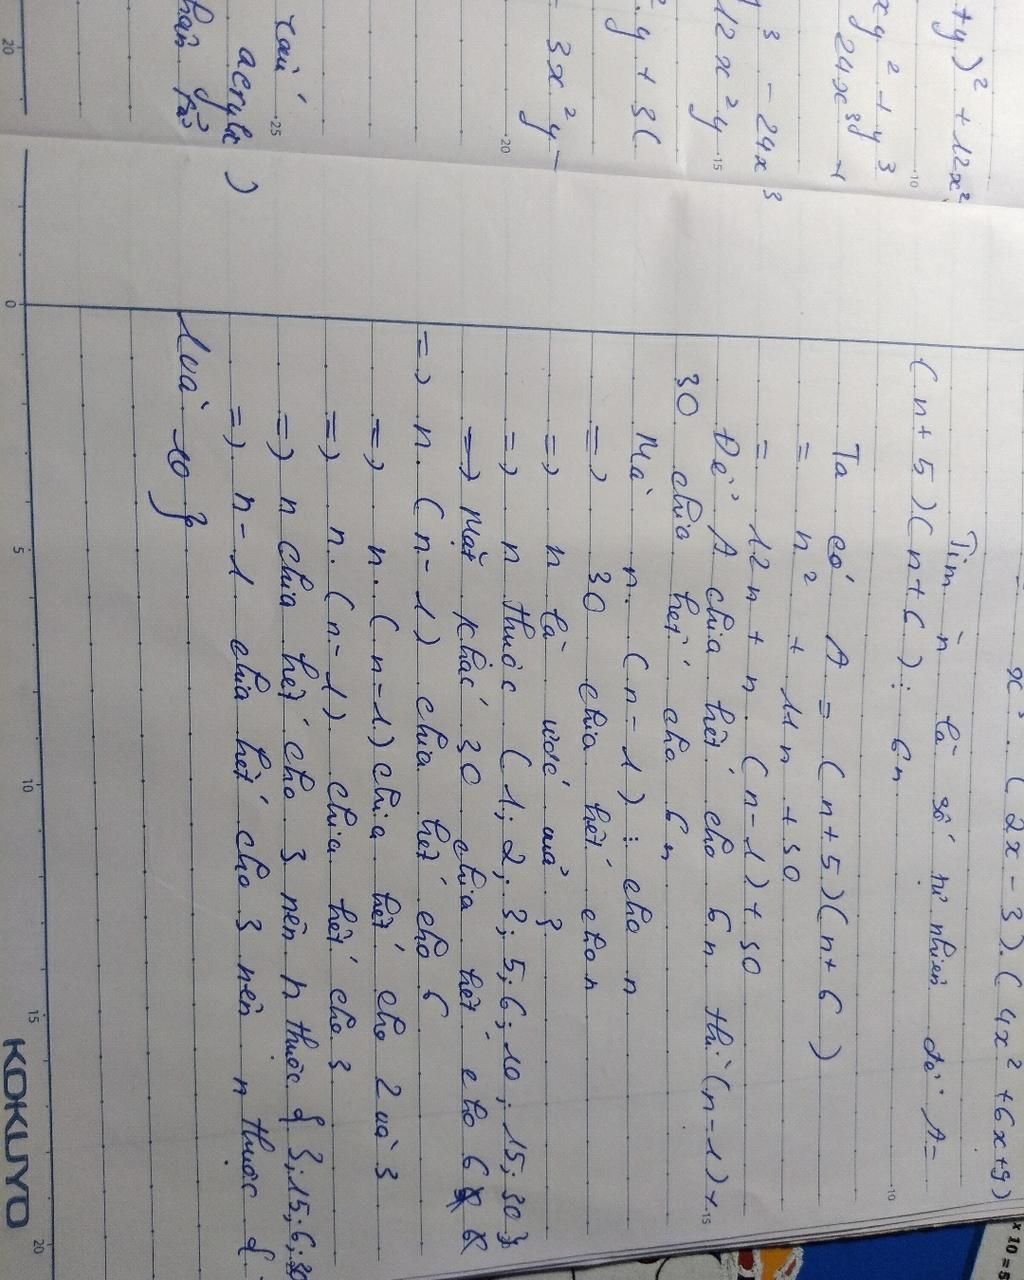 +y)² + 12x²
xy² + y³
24x³y
³ - 24x³
12x²y
².y + 3(
- 3x²y -
acrylic )
x³. (2x - 3).(4x² + 6x + 9)
Tìm n là số tự nhiên để A =
(n + 5)(n + 6) : 6n
Ta có A = (n + 5)(n + 6)
= n² + 11n + 30
= 12n + n.(n - 1) + 30
Để A chia hết cho 6n thì (n - 1) +
30 chia hết cho 6n
Mà n. (n - 1) : cho n
=) 30 chia hết cho n
=) n là ước của 3
=) n thuộc (1; 2; 3; 5; 6; 10; 15; 30}
=) Mặt khác 30 chia hết cho 6
=) n. (n - 1) chia hết cho 6
=) n. (n - 1) chia hết cho 2 và 3
=) n. (n - 1) chia hết cho 3
=) n chia hết cho 3 nên n thuộc { 3; 15; 6; 30
=) n - 1 chia hết cho 3 nên n thuộc {
1 và 10 }
0 5 10 15 20
KOKUYO
10
15
10
15
20
25
20
x 10 = 5